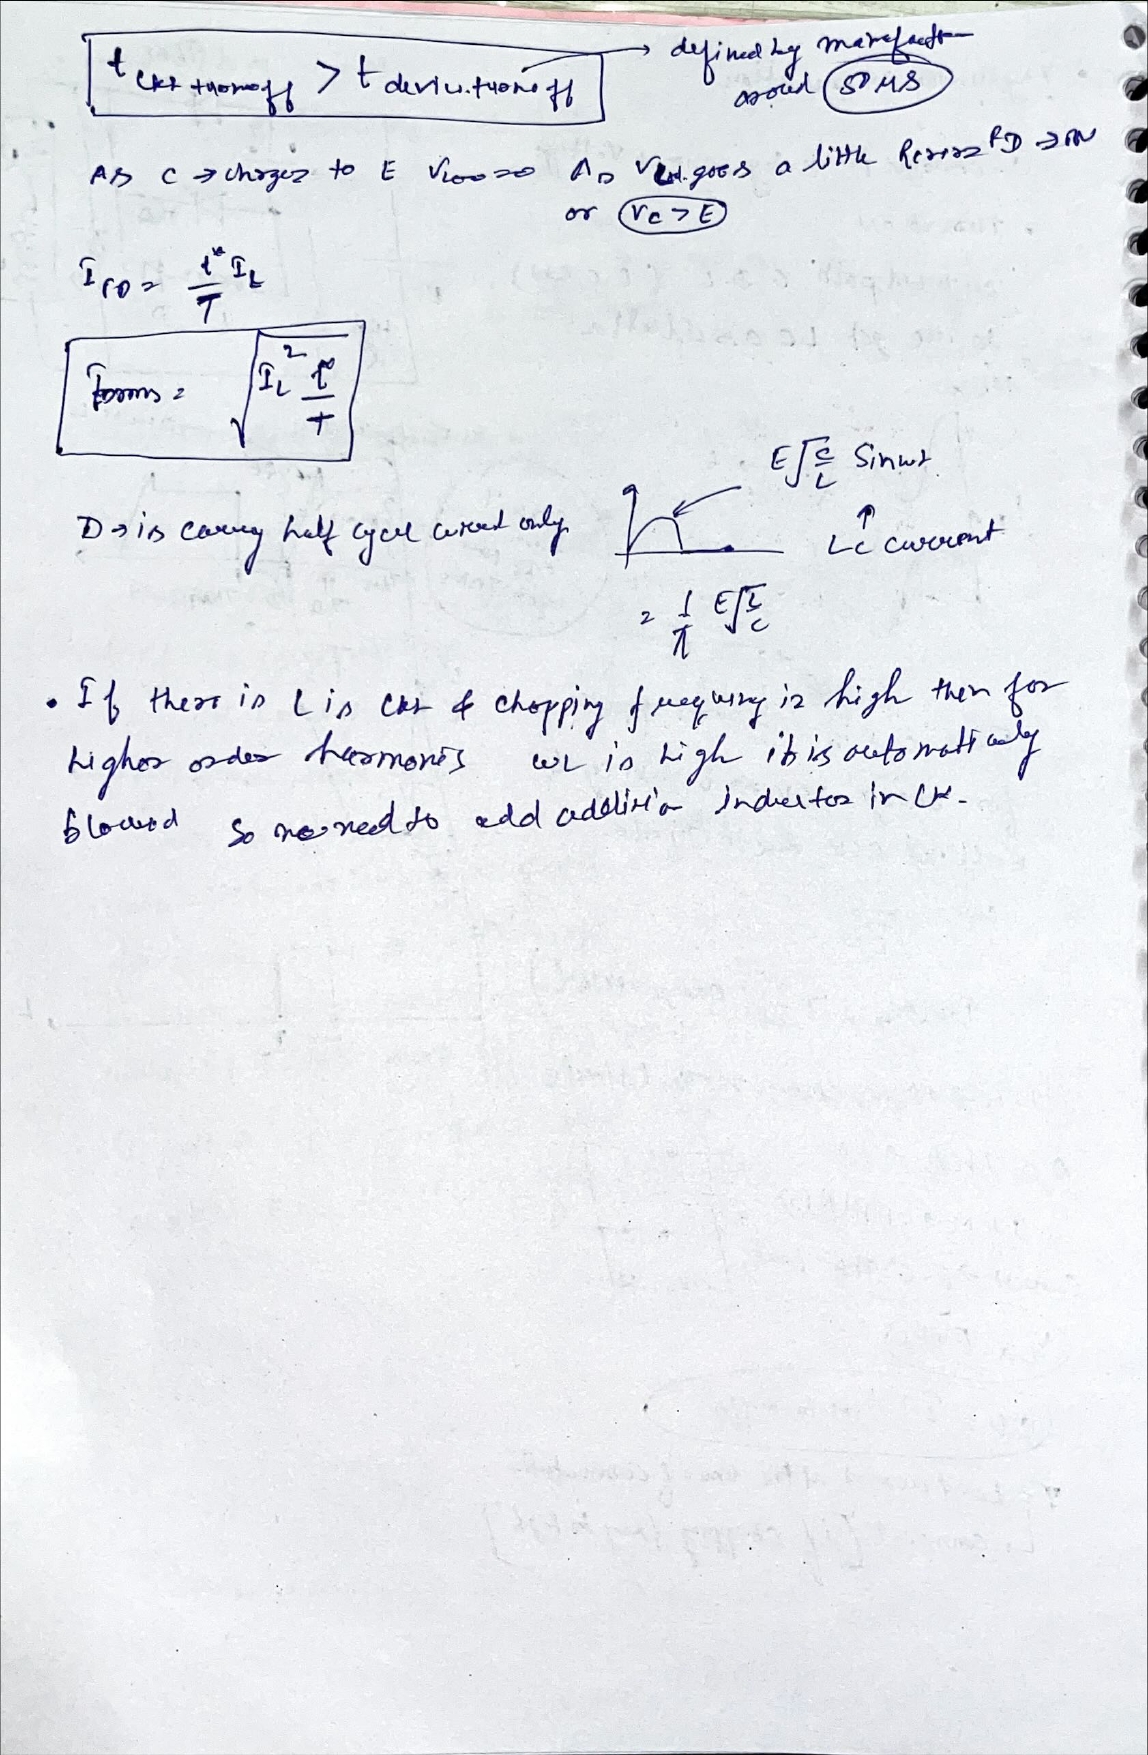 t ckt turnoff > t device.turnoff → defined by manufact
around 50 μs
As C → charges to E V = 0 As V goes a little Revers FD → ON
or Vc > E
I FD = t*/T IL
Irms = √(IL² t*/T)
E√(C/L) sinωt
D → is carry half cycle current only
↑
LC current
= 1/π E√(L/C)
• If there is L is ckt & chopping frequency is high then for
higher order harmonics ωL is high it is automatically
blocked so no need to add addition inductor in ckt.